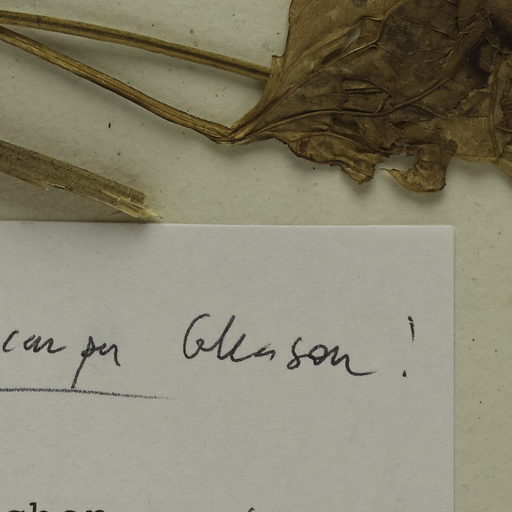 carpa Gleason!